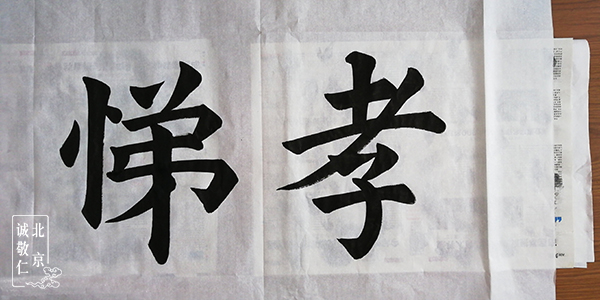 孝悌
北京
诚敬仁